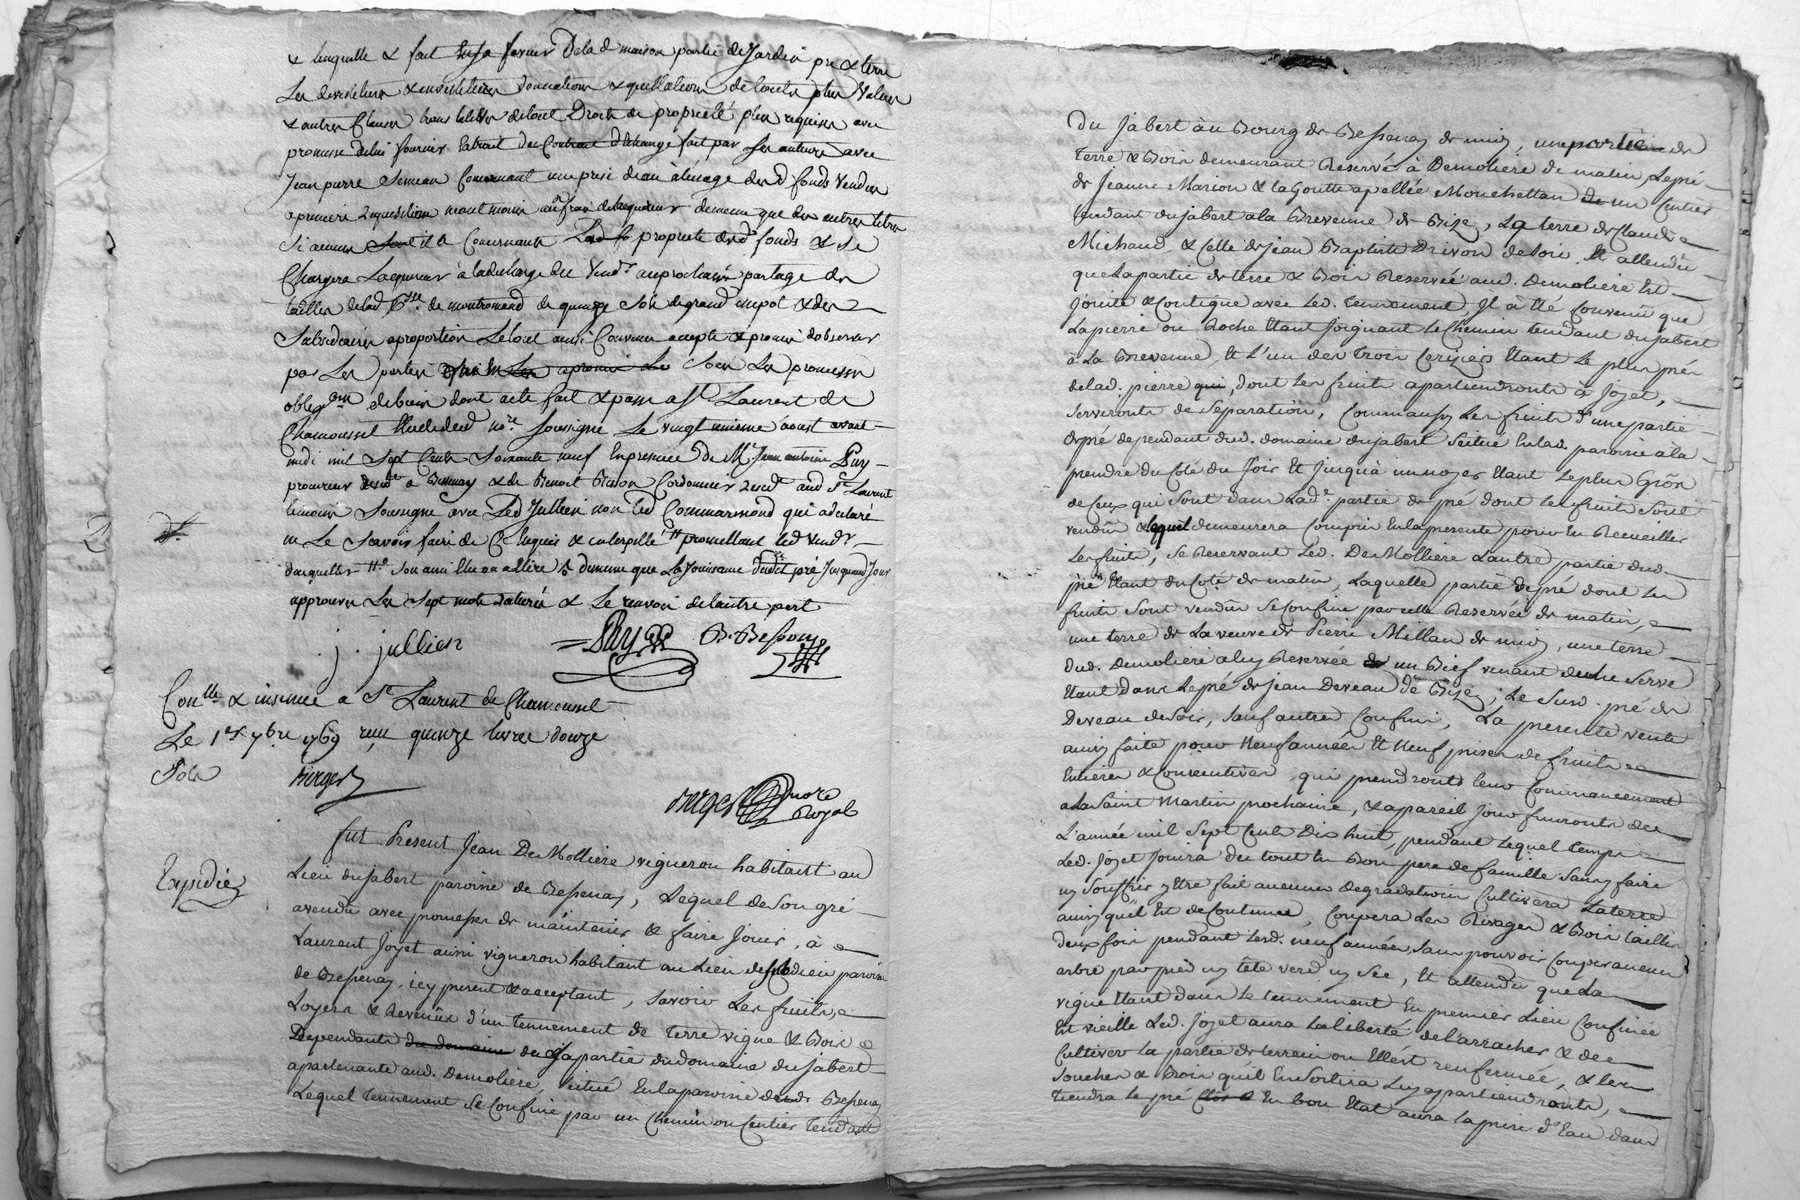 & laquelle & fait de la d. maison partie de Jardin pré & terre
Les devestitures & investitures donnations & quittations de toutes plus Values
& autres Clauses translatives de tout Droits de propriété plus requises avec
promesse de lui fournir Extrait du Contract d'Echange fait par ses auteurs avec
Jean pierre Concernant une prise d'eau à l'usage desd fonds vendus
a premiere requisition neantmoins aux frais de lacquereur de meme que des autres titres
Si aucuns il a Concernants propriete desd fonds & se
Chargera Lacquereur à la decharge du Vendr au prochain partage des
tailles de lad Psse de montromand de quinze sols de grand impot & des
Subsidiaires a proportion Le tout ainsi Convenu accepté & promis dobserver
par Les parties Sous Les promesses
obligons de biens dont acte fait & passé a St Laurent de
Chamousset Etude dud nore soussigné Le vingt unieme aoust avant
midi mil Sept Cents Soixante neuf En presence de Me Jean antoine Puy
procureur & de Benoit Besson Cordonnier aud St Laurent
temoins Soussignés avec Led Jullien non Led Commarmond qui a declaré
ne Le Scavoir faire de Ce Requis & interpellé promettant led Vendr
de meme que La Jouissance dudit pré Jusqu'au Jour
approuvés Les Sept mots raturés & Le renvoi de lautre part
j. jullien
Puy
B. Besson
Conlle & insinué a St Laurent de Chamousset
Le 1er 7bre 1769 reçu quinze livres douze
Sols
Berger
Berger nore Royal
Expediée
fut Present Jean De Molliere vigneron habitant au
Lieu du Jabert paroisse de Bessenay, Lequel de Son gré
a vendu avec promesse de maintenir & faire Jouir, à
Laurent Joyet aussi vigneron habitant au Lieu de paroisse
de Bessenay, icy present & acceptant, Savoir Les fruits,
Loyers & Revenus d'un tennement de terre vigne & Bois
Dependants du domaine de La partie du domaine du Jabert
apartenante aud. Demoliere, Scitué En la paroisse dud. Bessenay
Lequel tennement Se Confine par un Chemin ou Centier tendant
Du Jabert au Bourg de Bessenay de midy, une portion de
Terre & Bois demeurant Reservé à Demoliere de matin, Le pré
de Jeanne Marion & la Goutte apellée Mouchettan de un Centier
tendant du Jabert a la Brevenne de Bize, La terre de Claude
Michaud, & Celle de Jean Baptiste Drivon de Soir, Et attendu
que La partie de terre & Bois Reservée aud. Demoliere Est
Jointe & Contigue avec Led. Tennement Il à Eté Convenû que
La pierre ou Roche Etant Joignant le Chemin tendant du Jabert
à La Brevenne, Et L'un des trois Cerisiers Etant Le plus près
de lad. pierre qui, dont les fruits apartiendronts à Joyet,
Servironts de Separation, Comm'aussy Les fruits d'une partie
de pré dependant dud. domaine du Jabert Scitué En lad. paroisse à la
prendre du Coté du Soir Et Jusqu'à un noyer Etant Le plus Gros
de Ceux qui Sont dans Lade. partie de pré dont les fruits Sont
vendûs & lequel demeurera Compris En la presente pour En Recueillir
Les fruits, Se Reservant Led. De Molliere Lautre partie dud.
pré Etant du Coté de matin, Laquelle partie de pré dont Les
fruits Sont vendûs Se Confine par celle Reservée de matin,
une terre de La veuve de Pierre Millan de midy, une terre
Dud. Demoliere a luy Reservée & un Bief venant de une Serve
Etant dans Le pré de Jean Deveau de Bize, Le Susd. pré de
Deveau de Soir, Sauf autres Confins, La presente vente
ainsy faite pour Neuf années Et Neuf prises de fruits
Entieres & Consecutives, qui prendronts leur Commancement
a La Saint Martin prochaine, & a pareil Jour finironts de
L'année mil Sept Cents Dix huit, pendant Lequel temps
Led. Joyet Jouira du tout En Bon pere de famille Sans y faire
ny Souffrir Etre fait aucunes degradations Cultivera La terre
ainsy qu'il Est de Coutume, Coupera Les Rivages & Bois taillis
deux fois pendant Lesd. neuf années, Sans pouvoir Couper aucuns
arbre par pied ny tête verd ny Sec, Et attendu que La
vigne Etant dans Le tennement En premier Lieu Confiné
Est vieille Led. Joyet aura La liberté de l'arracher & de
Cultiver La partie de terrein ou Elle Est renfermée, & Les
Souches & Bois qu'il En Sortira Luy apartiendronts,
Tiendra Le pré En bon Etat aura La prise d'Eau dans